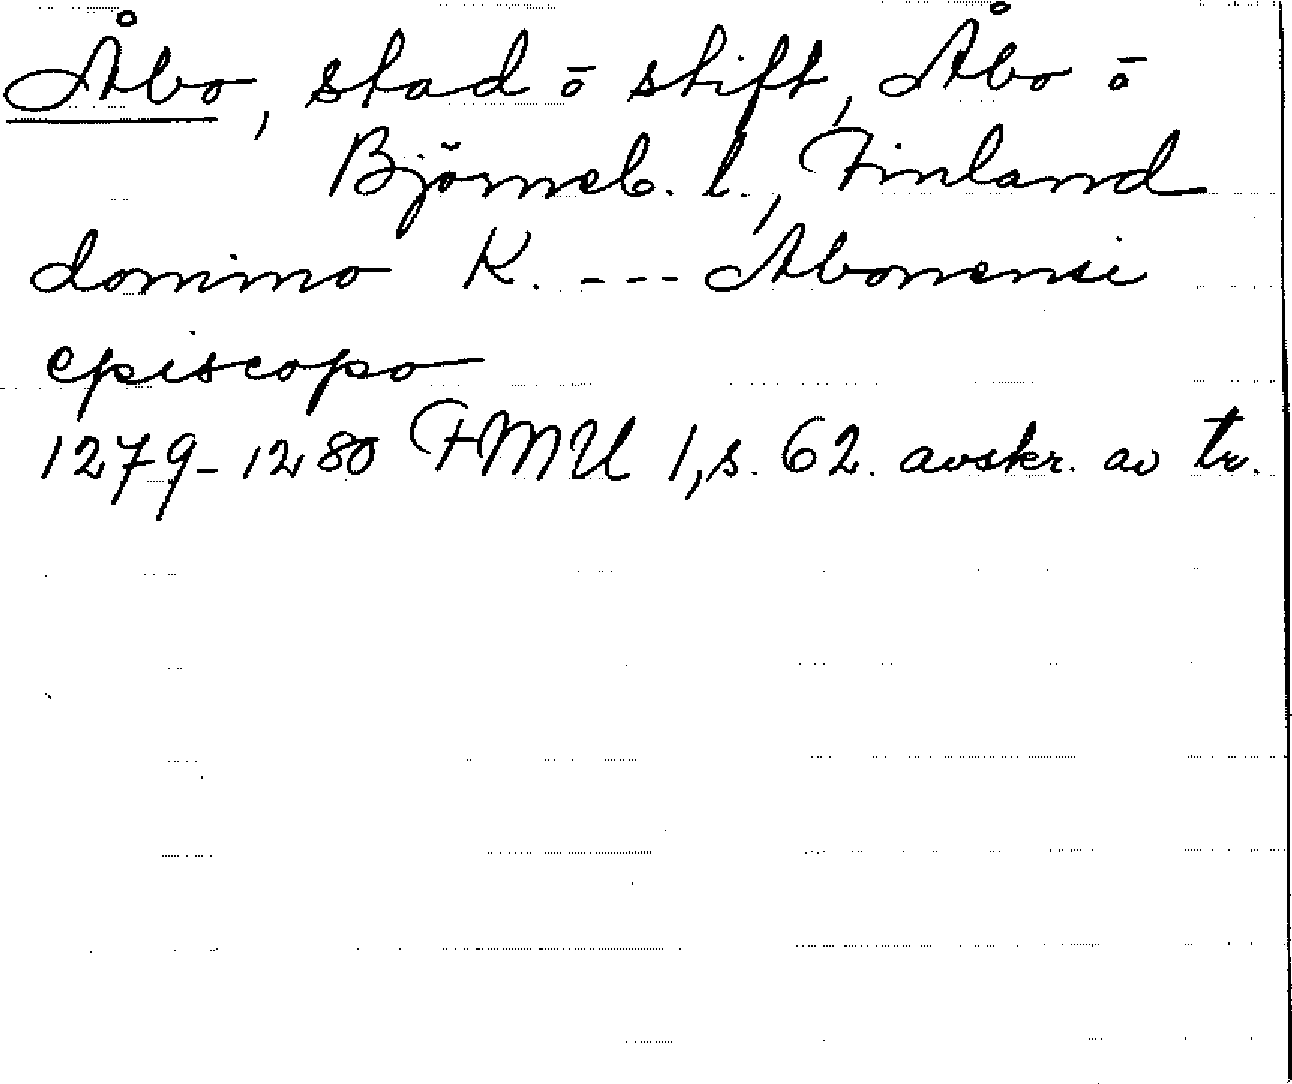 Åbo, stad ō stift, Åbo ō
Björneb. l., Finland
domino K. --- Abonensi
episcopo
1279-1280 FMU 1, s. 62. avskr. av tr.